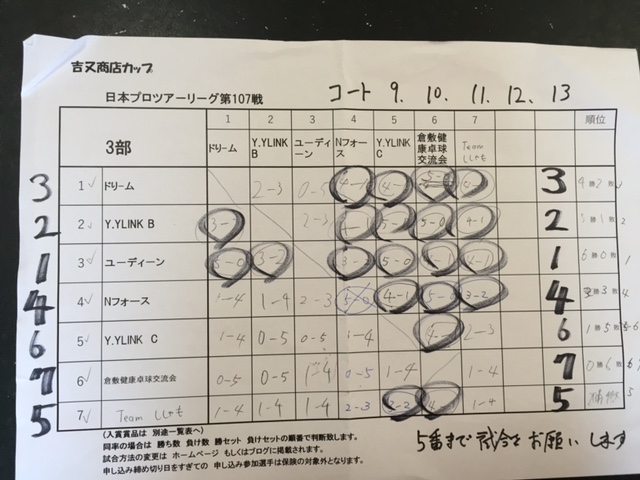 吉又商店カップ
日本プロツアーリーグ第107戦 コート 9. 10. 11. 12. 13
1 2 3 4 5 6 7 順位
3部 ドリーム Y.YLINK B ユーディーン Nフォース Y.YLINK C 倉敷健康卓球交流会 Team しゃも
3 1 ドリーム 2-3 0-5 4-1 4-1 3 4勝2敗
2 2 Y.YLINK B 3-2 2-3 4-1 5-0 5-0 4-1 2 5勝1敗 2
1 3 ユーディーン 5-0 3-2 3-2 5-0 4-1 4-1 1 6勝0敗 1
4 4 Nフォース 1-4 1-4 2-3 4-1 5-0 3-2 4 3勝3敗 4
6 5 Y.YLINK C 1-4 0-5 0-5 1-4 2-3 6 1勝5敗
7 6 倉敷健康卓球交流会 0-5 0-5 1-4 0-5 1-4 1-4 7 0勝6敗
5 7 Team しゃも 1-4 1-4 1-4 2-3 3-2 4-1 1-4 5
(入賞賞品は 別途一覧表へ)
同率の場合は 勝ち数 負け数 勝セット 負けセットの順番で判断致します。
試合方法の変更は ホームページ もしくはブログに掲載されます。
申し込み締め切り日をすぎての 申し込み参加選手は保険の対象外となります。
5番まで試合をお願いします